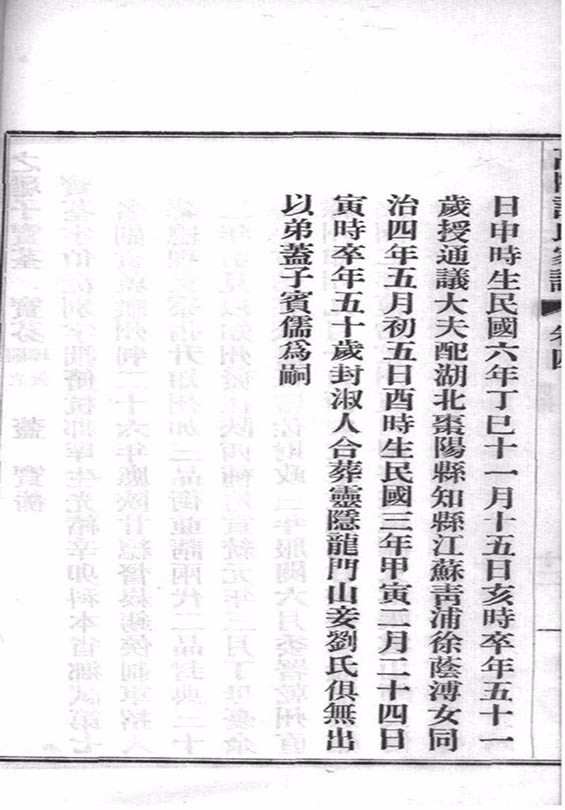 日申時生民國六年丁巳十一月十五日亥時卒年五十一
歲授通議大夫配湖北棗陽縣知縣江蘇靑浦徐蔭溥女同
治四年五月初五日酉時生民國三年甲寅二月二十四日
寅時卒年五十歲封淑人合葬靈隱龍門山妾劉氏俱無出
以弟蓋子賓儒爲嗣